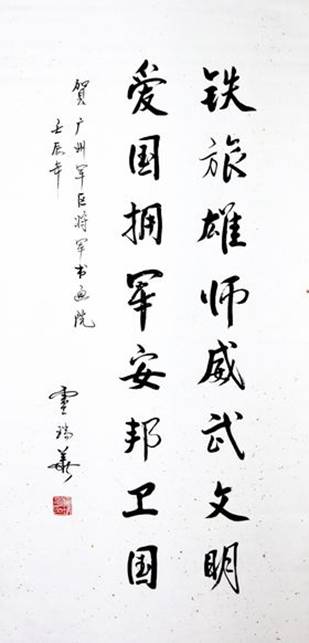 铁旅雄师威武文明
爱国拥军安邦卫国
贺广州军区将军书画院
壬辰年
瑞华